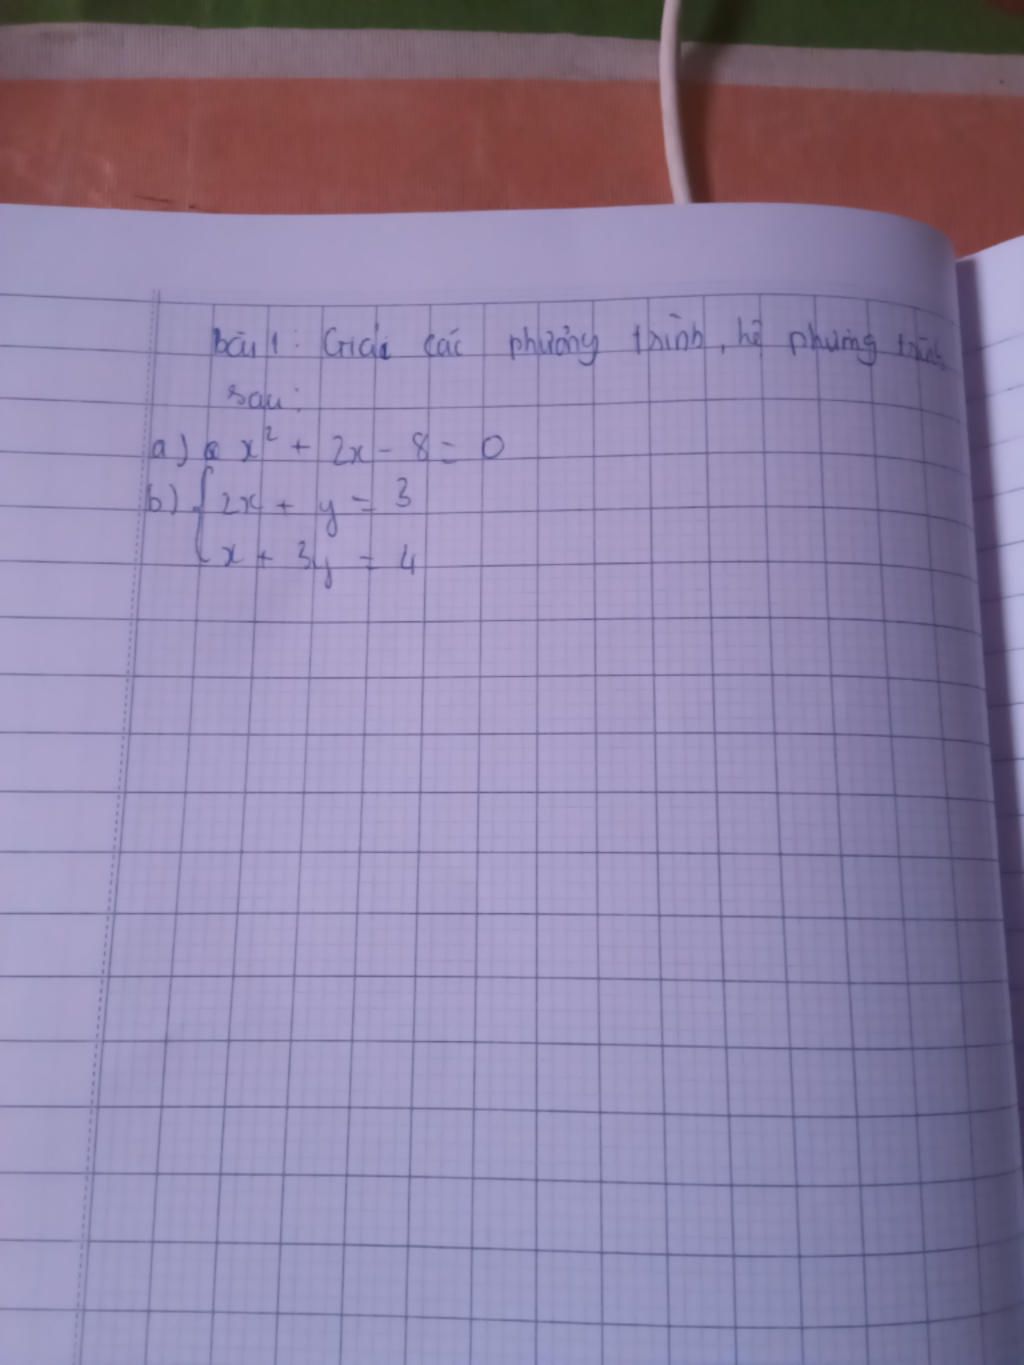 Bài 1: Giải các phương trình, hệ phương trình
sau:
a) x² + 2x - 8 = 0
b) { 2x + y = 3
x + 3y = 4